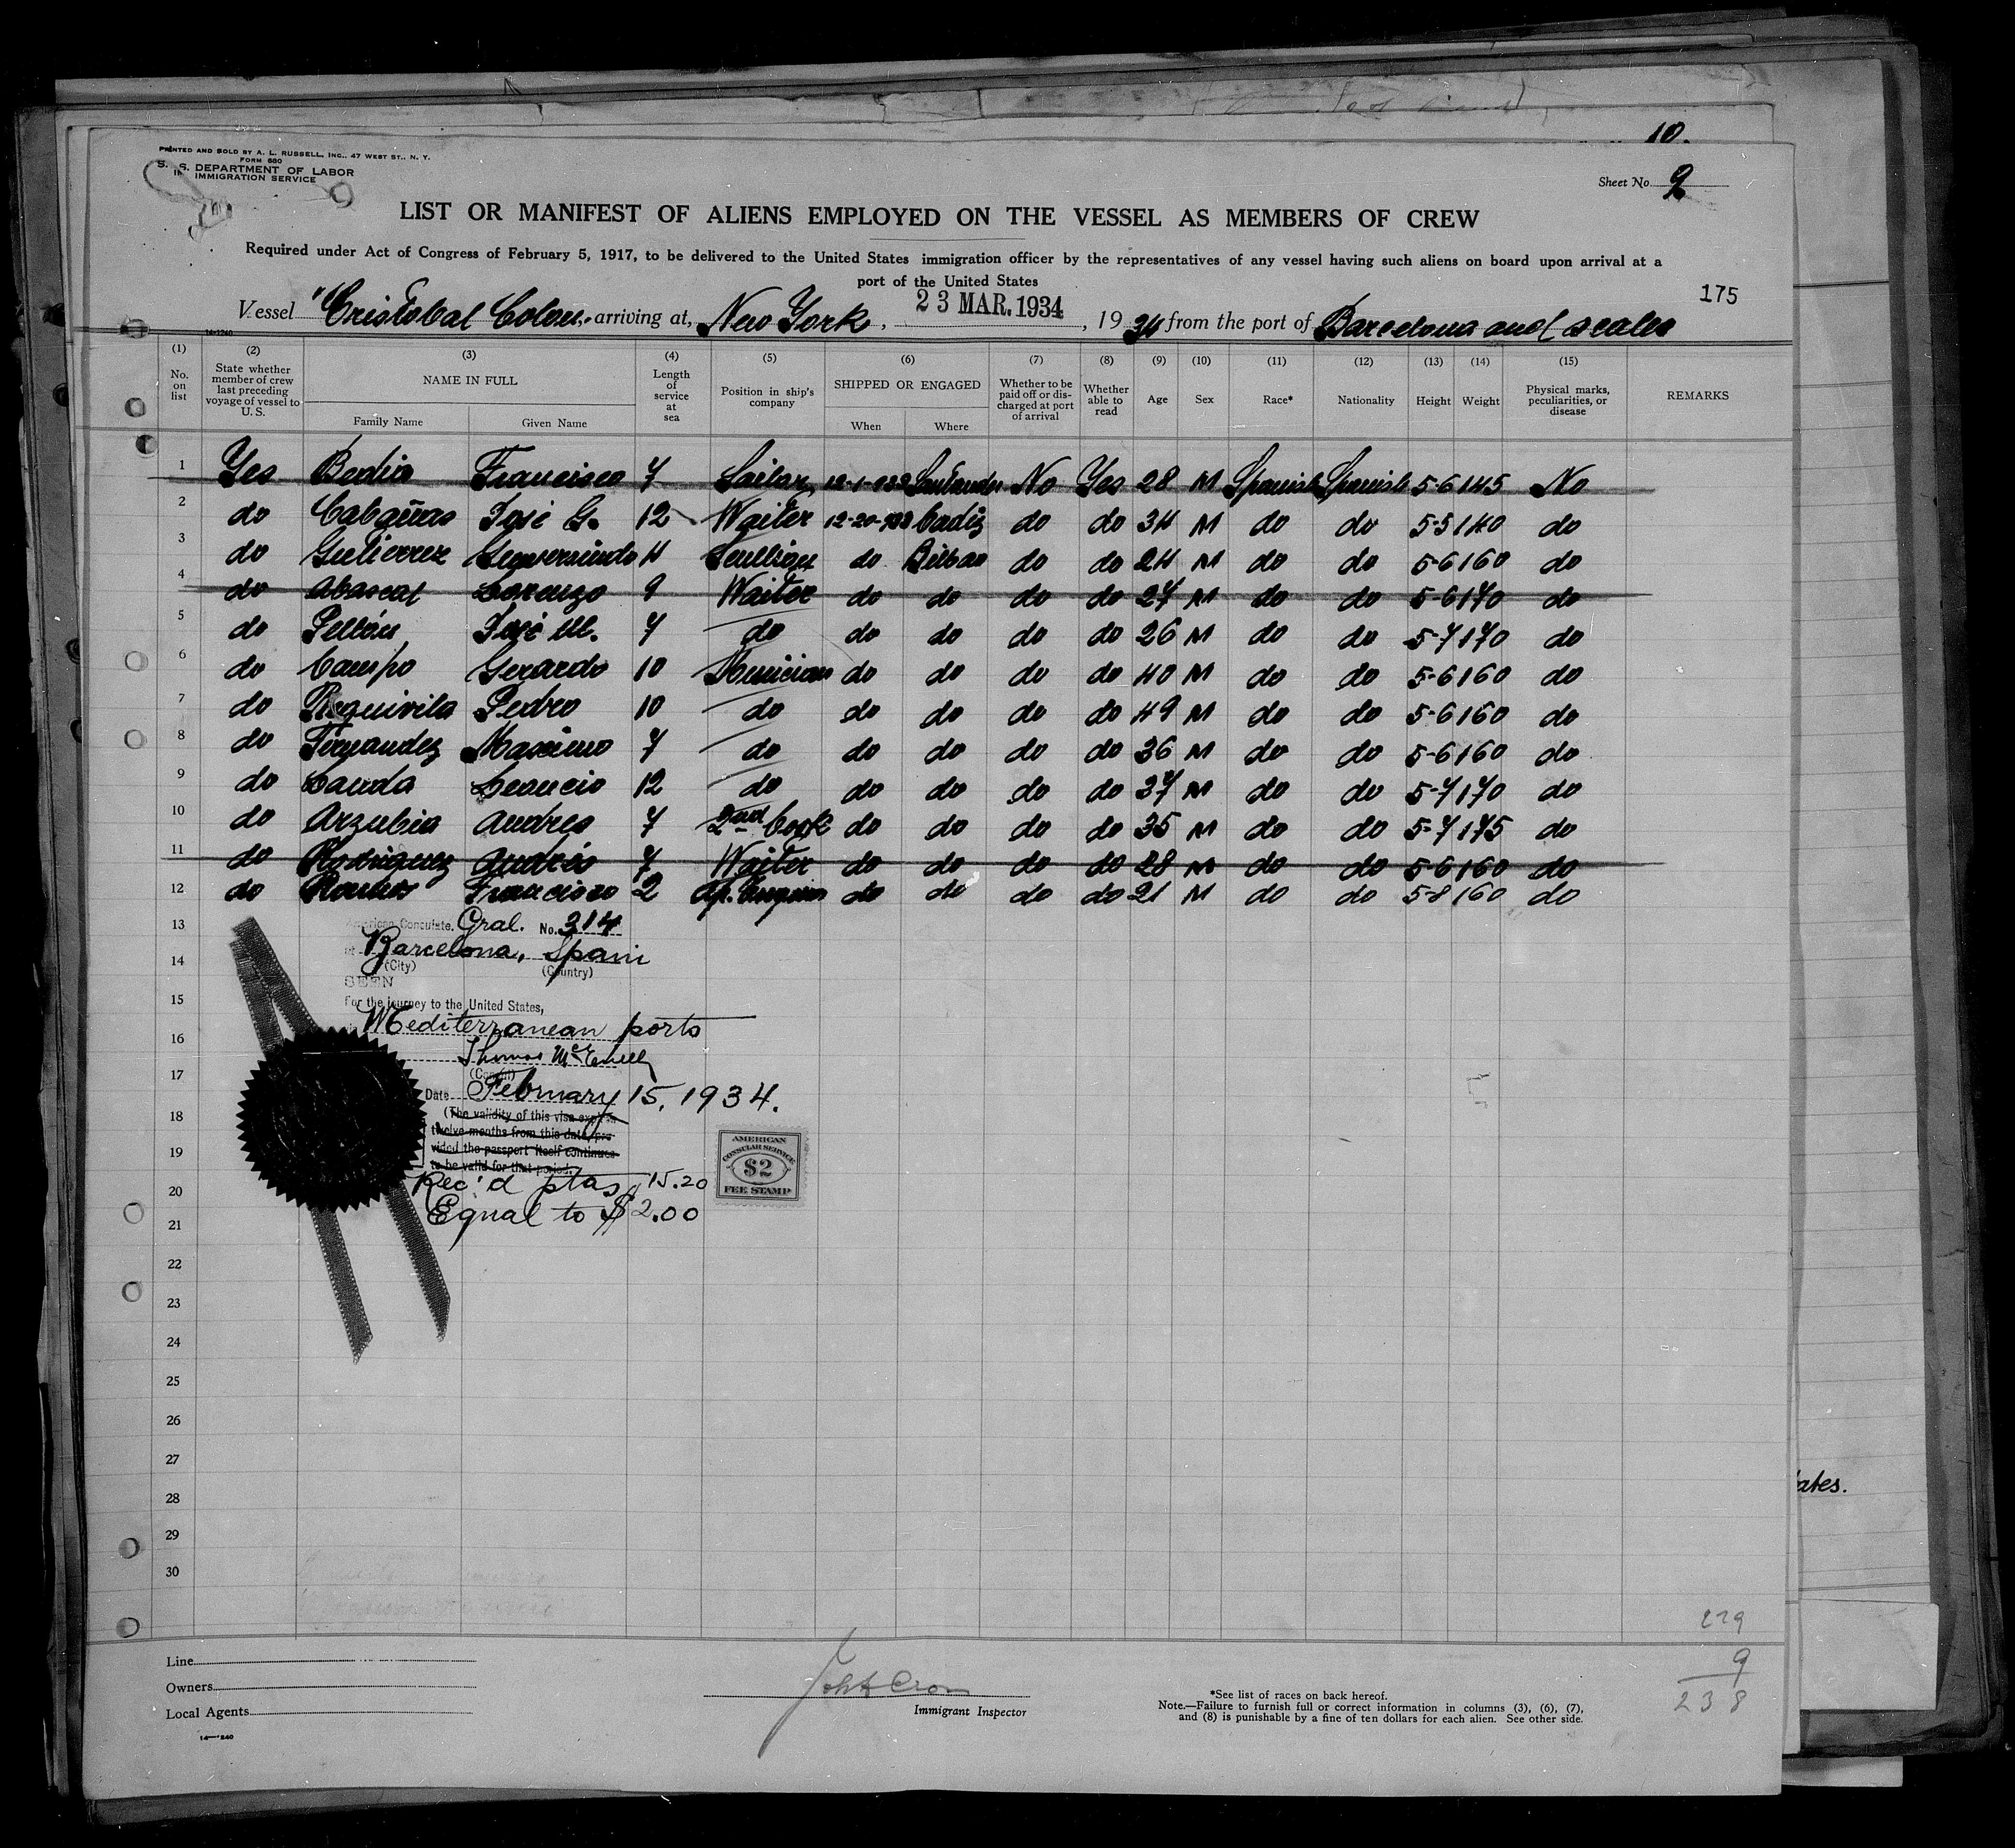 10.
PRINTED AND SOLD BY A. L. RUSSELL, INC., 47 WEST ST., N. Y.
FORM 680
S. DEPARTMENT OF LABOR
IMMIGRATION SERVICE
Sheet No. 9
LIST OR MANIFEST OF ALIENS EMPLOYED ON THE VESSEL AS MEMBERS OF CREW
Required under Act of Congress of February 5, 1917, to be delivered to the United States immigration officer by the representatives of any vessel having such aliens on board upon arrival at a
port of the United States
175
Vessel "Cristobal Colon" arriving at New York, 23 MAR. 1934, 1934 from the port of Barcelona and scales
(1) (2) (3) (4) (5) (6) (7) (8) (9) (10) (11) (12) (13) (14) (15)
No. on list State whether member of crew last preceding voyage of vessel to U. S. NAME IN FULL Length of service at sea Position in ship's company SHIPPED OR ENGAGED Whether to be paid off or discharged at port of arrival Whether able to read Age Sex Race* Nationality Height Weight Physical marks, peculiarities, or disease REMARKS
Family Name Given Name When Where
1 Yes Bedia Francisco 7 Sailor 12-1-933 Santander No Yes 28 M Spanish Spanish 5-6 145 No
2 do Cabañas José G. 12 Waiter 12-20-933 Cadiz do do 34 M do do 5-5 140 do
3 do Gutierrez Gumersindo 4 Scullion do Bilbao do do 24 M do do 5-6 160 do
4 do Abascal Lorenzo 9 Waiter do do do do 27 M do do 5-6 170 do
5 do Pellón José M. 7 do do do do do 26 M do do 5-7 170 do
6 do Campo Gerardo 10 Musician do do do do 40 M do do 5-6 160 do
7 do Requivila Pedro 10 do do do do do 49 M do do 5-6 160 do
8 do Fernandez Maximo 7 do do do do do 36 M do do 5-6 160 do
9 do Landa Leoncio 12 do do do do do 37 M do do 5-7 170 do
10 do Arzubia Andres 7 2nd Cook do do do do 35 M do do 5-7 175 do
11 do Rodriguez Andrés 7 Waiter do do do do 28 M do do 5-6 160 do
12 do Francisco 2 do do do do 21 M do do 5-8 160 do
13 American Consulate. Gral. No. 314
Barcelona, Spain
14 (City) (Country)
SEEN
15 for the journey to the United States,
Mediterranean ports
16
Thomas
17 (Consul)
Date February 15, 1934.
18 (The validity of this visa expires
twelve months from this date, pro-
19 vided the passport itself continues
to be valid for that period.
20 Rec'd ptas 15.20
21 Equal to $2.00
AMERICAN
CONSULAR SERVICE
$2
FEE STAMP
22
23
24
25
26
27
28
29
30
ates.
229
9
238
Line
Owners
Local Agents
Immigrant Inspector
*See list of races on back hereof.
Note.—Failure to furnish full or correct information in columns (3), (6), (7),
and (8) is punishable by a fine of ten dollars for each alien. See other side.